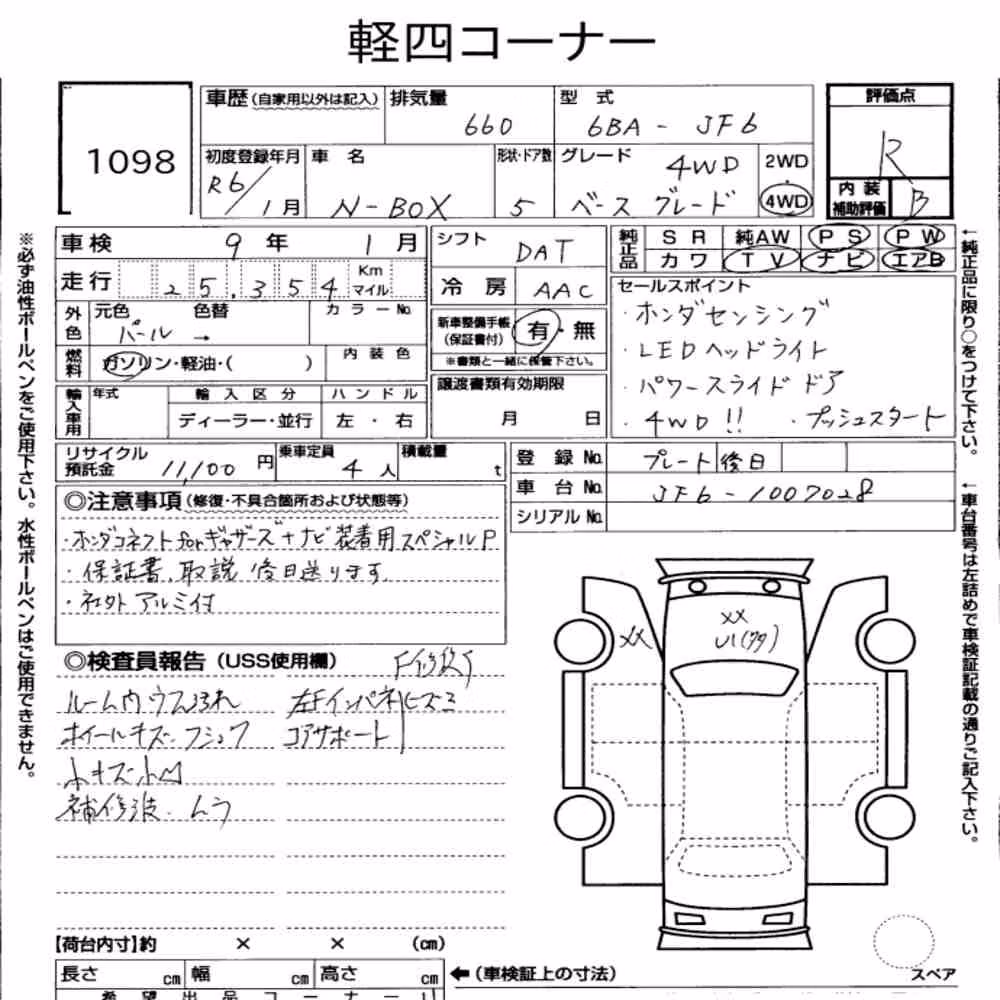 軽四コーナー
1098
車歴 (自家用以外は記入) 排気量 660
型式 6BA - JF6
評価点 R
内装補助評価 B
初度登録年月 R6/1月
車名 N-BOX
形状・ドア数 5
グレード 4WD ベースグレード
2WD・4WD
車検 9年 1月
走行 25,354 Km マイル
外色 元色 パール 色替 →
カラーNo
燃料 ガソリン・軽油・( )
内装色
輸入車用 年式 輸入区分 ハンドル
ディーラー・並行 左・右
シフト DAT
冷房 AAC
新車整備手帳(保証書付) 有・無
※書類と一緒に保管下さい。
譲渡書類有効期限
月 日
純正品 SR 純AW PS PW
カワ TV ナビ エアB
セールスポイント
・ホンダセンシング
・LEDヘッドライト
・パワースライドドア
・4WD!! ・プッシュスタート
リサイクル預託金 11,100円
乗車定員 4人
積載量 t
登録No. プレート後日
車台No. JF6-1007028
シリアルNo.
◎注意事項(修復・不具合個所および状態等)
・ホンダコネクトforギャザーズ+ナビ装着用スペシャルP
・保証書、取説 後日送ります
・社外アルミ付
◎検査員報告(USS使用欄) F修復
ルーム内ウス汚れ 左Fインパネヒズミ
ホイールキズ・フショク コアサポート
小キズ小凹
補修波・ムラ
XX
XX
U1(ワタ)
【荷台内寸】約 × × (cm)
長さ cm 幅 cm 高さ cm ←(車検証上の寸法)
スペア
希望出品コーナー
※必ず油性ボールペンをご使用下さい。水性ボールペンはご使用できません。
←純正品に限り○をつけて下さい。
←車台番号は左詰めで車検証記載の通りご記入下さい。